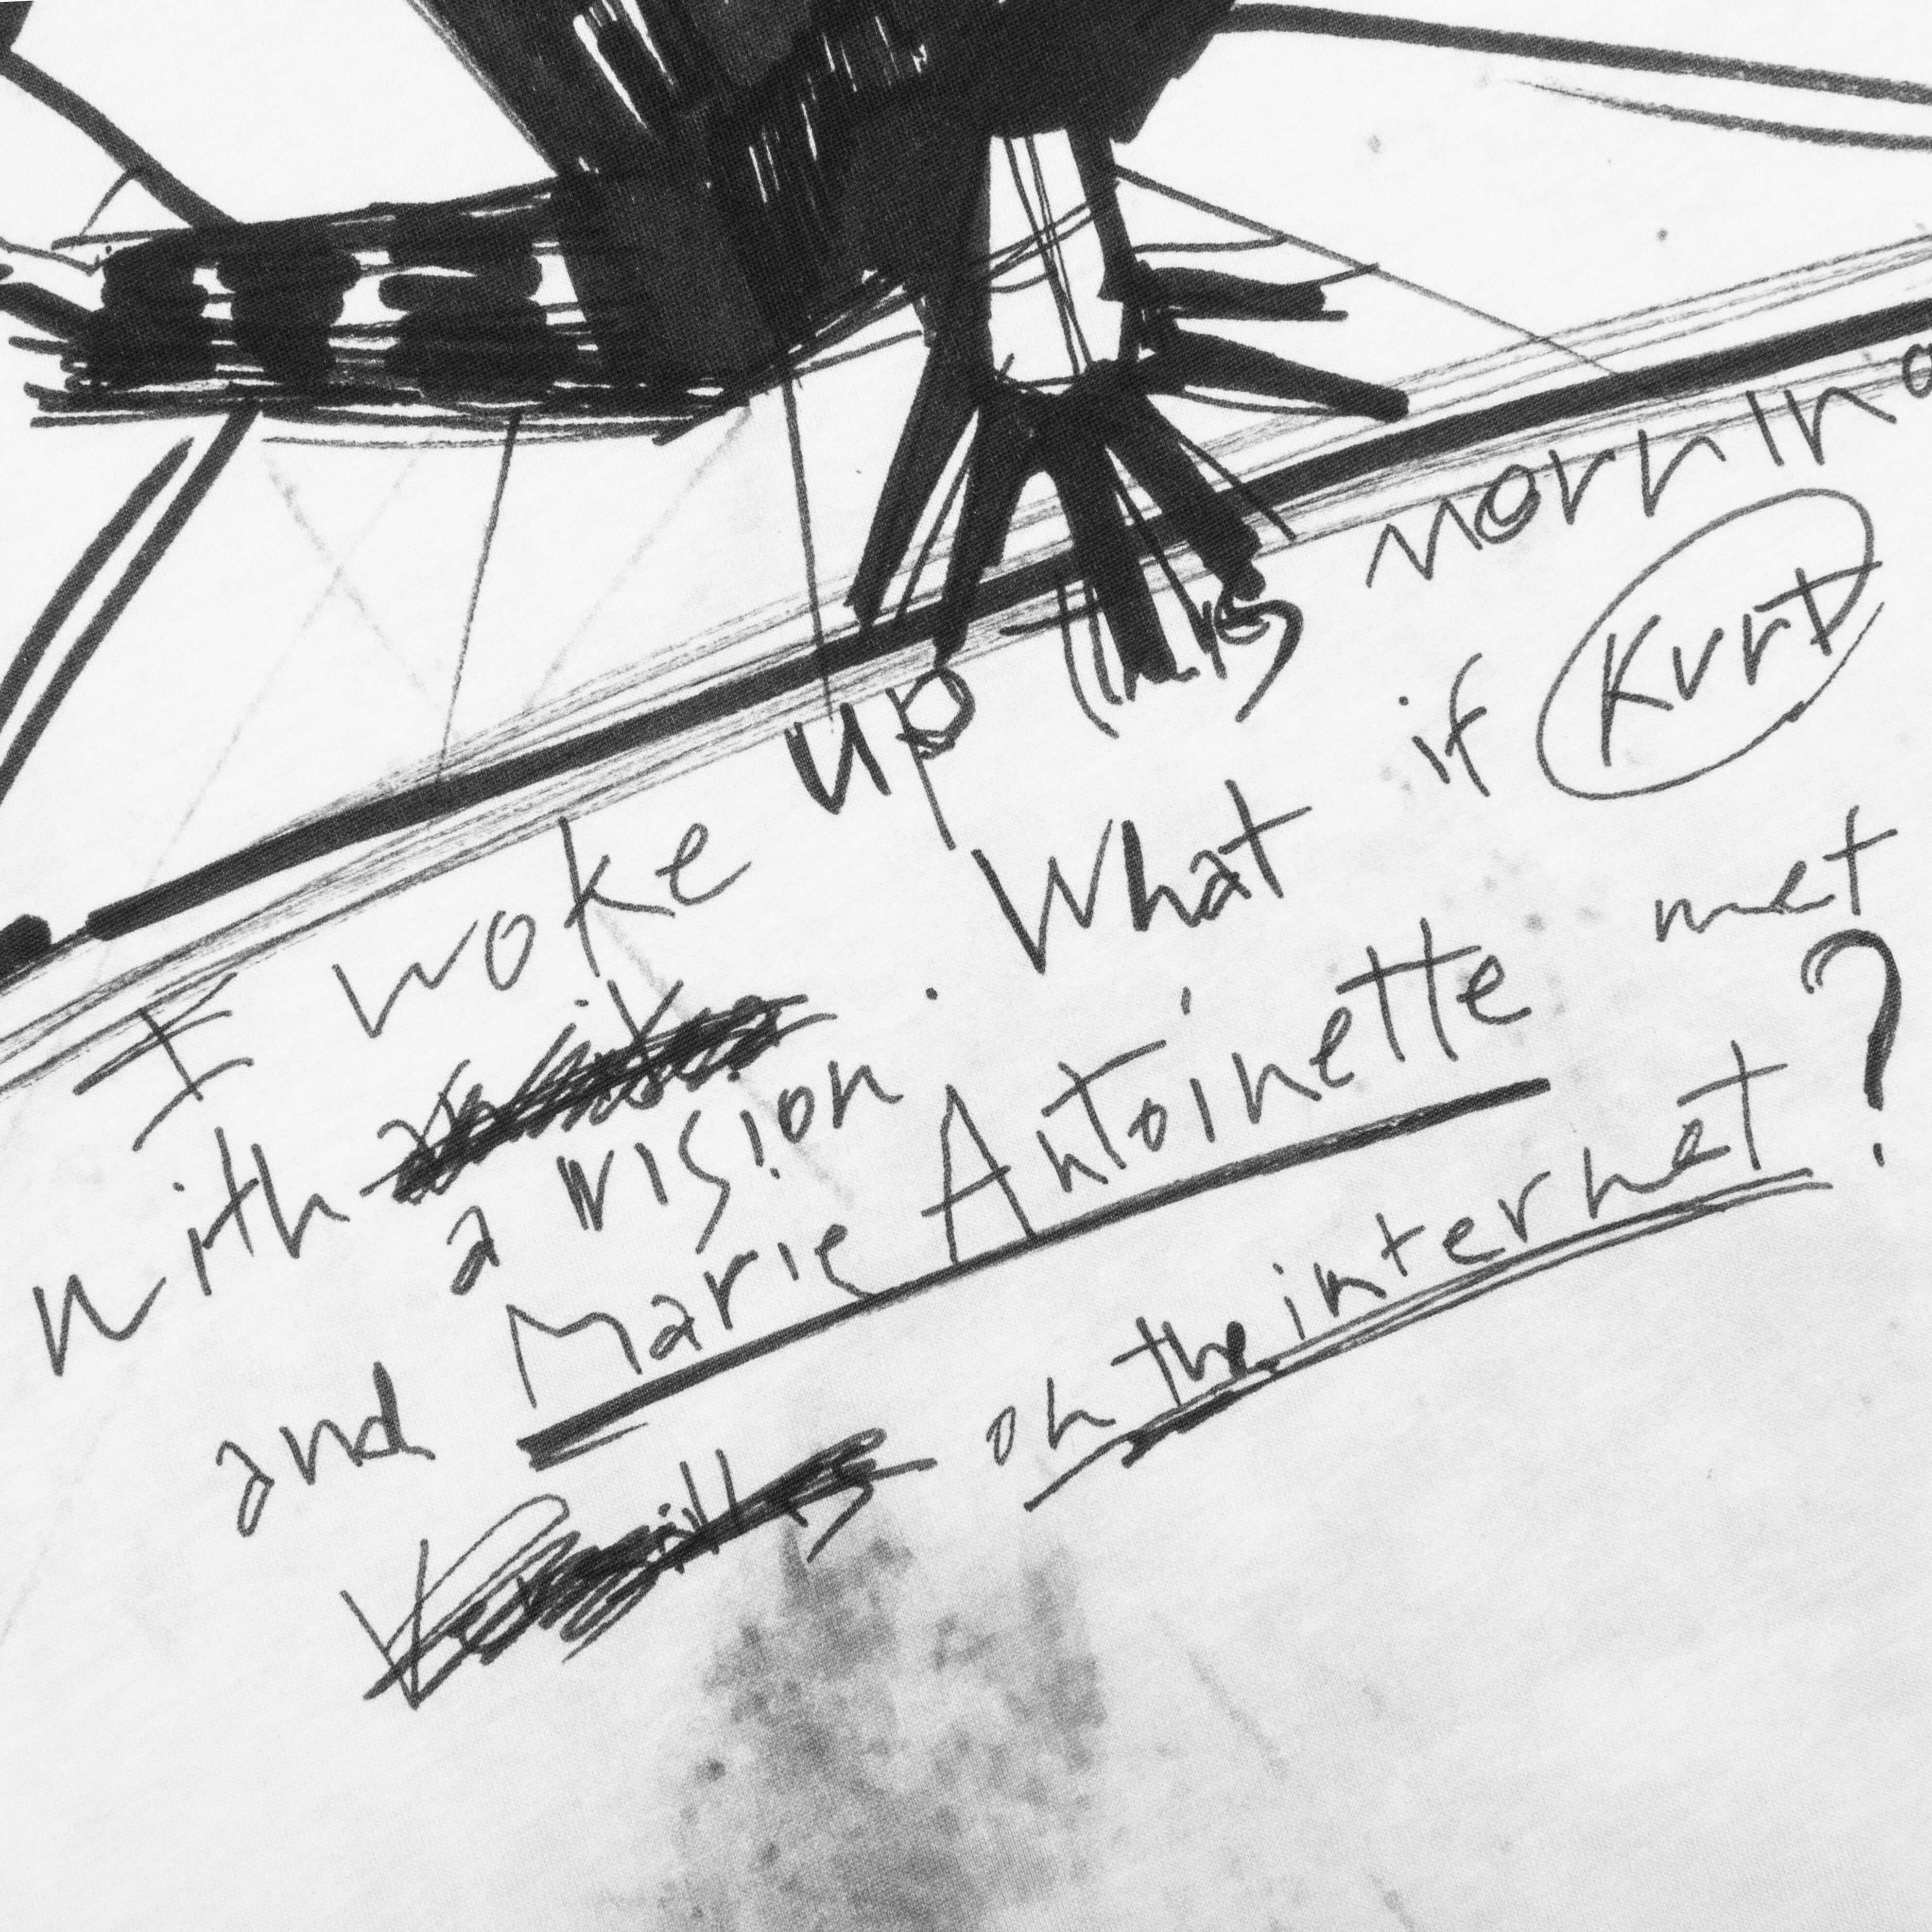 I woke up this morning
with a vision. What if Kurt
and Marie Antoinette met
on the internet?